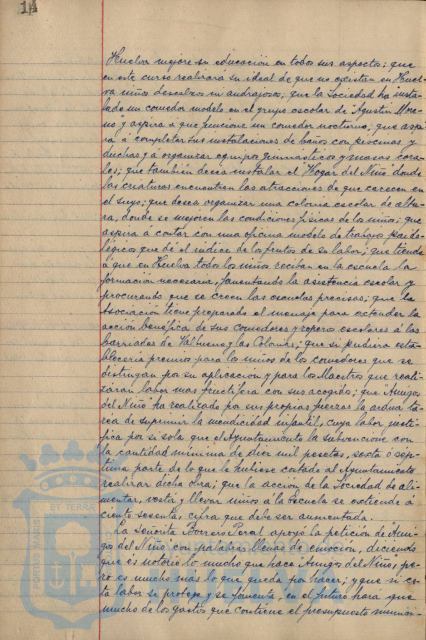 14
Huelva mejore su educación en todos sus aspectos; que
en este curso realizará su ideal de que no existan en Huel-
va niños descalzos ni andrajosos; que la Sociedad ha insta-
lado un comedor modelo en el grupo escolar de "Agustín More-
no" y aspira á que funcione un comedor nocturno; que aspi-
ra á completar sus instalaciones de baños con piscinas y
duchas y á organizar equipos gimnásticos y masas cora-
les; que también desea instalar el "Hogar del Niño" donde
las criaturas encuentren las atracciones de que carecen en
el suyo; que desea organizar una colonia escolar de altu-
ra, donde se mejoren las condiciones físicas de los niños; que
aspira á contar con una oficina modelo de trabajos paido-
lógicos que dé el índice de los frutos de su labor; que tiende
á que en Huelva todos los niños reciban en la escuela la
formación necesaria, fomentando la asistencia escolar y
procurando que se creen las escuelas precisas; que la
Asociación tiene preparado el menaje para extender la
acción benéfica de sus comedores y roperos escolares á las
barriadas de Valbueno y las Colonias; que si pudiera esta-
blecería premios para los niños de los comedores que se
distingan por su aplicación y para los Maestros que reali-
zaran labor mas fructífera con sus acogidos; que "Amigos
del Niño" ha realizado por sus propias fuerzas la ardua ta-
rea de suprimir la mendicidad infantil, cuya labor justi-
fica por si sola que el Ayuntamiento la subvencione con
la cantidad mínima de diez mil pesetas, sexta ó sép-
tima parte de lo que le hubiese costado al Ayuntamiento
realizar dicha obra; que la acción de la Sociedad de ali-
mentar, vestir y llevar niños á la Escuela se extiende á
ciento sesenta, cifra que debe ser aumentada.
La Señorita Borrero Peral apoyó la petición de "Ami-
gos del Niño" con palabras llenas de emoción, diciendo
que es notorio lo mucho que hace Amigos del Niño, pe-
ro es mucho mas lo que queda por hacer; y que si es-
ta labor se protege y se fomenta, en el futuro hará que
mucho de los gastos que contiene el presupuesto munici-
PORTUS MARIS ET TERRAE